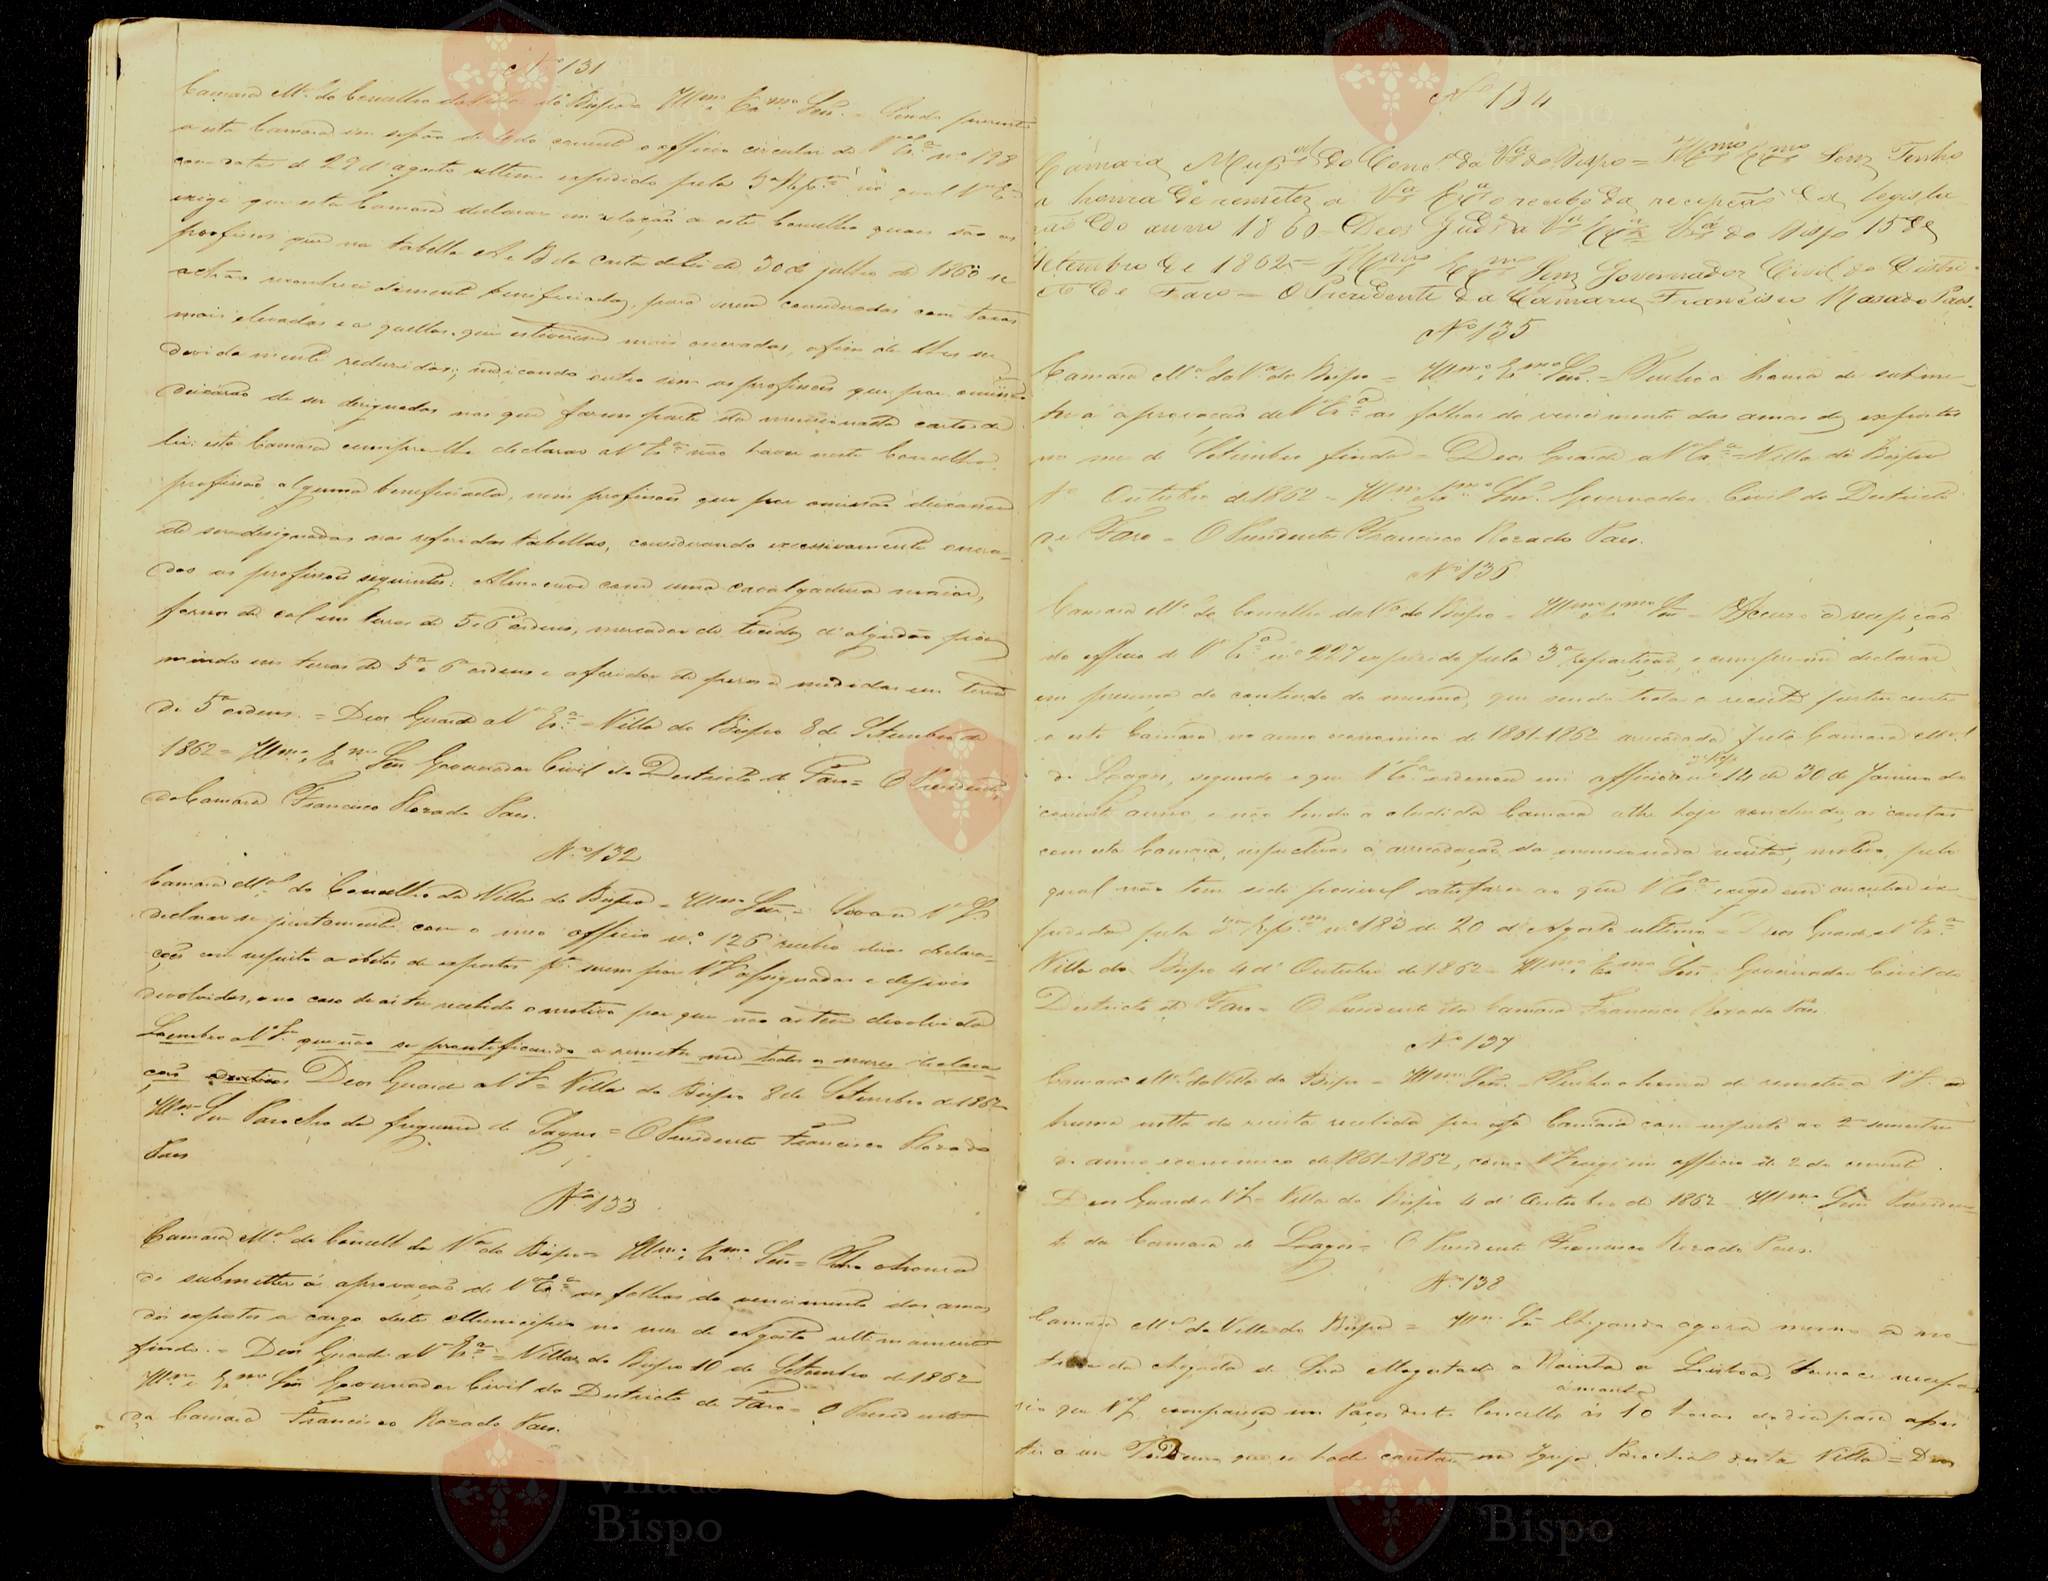 Nº 131
Camara Mal do Concelho da Villa do Bispo = Illmo e Exmo Snr. = Sendo presente
a esta Camara em sessão de 4 do corrente o officio circular de V Exª nº 198
com data de 29 d'agosto ultimo expedido pela 3ª Repam no qual V Exª
exige que esta Camara declare em relação a este Concelho quaes são as
profissões que na tabella A e B da carta de lei de 30 de julho de 1860 se
achão reconhecidamente beneficiadas, para serem consideradas com taxas
mais elevadas e a quellas que estiverem mais oneradas, afim de lhes ser
devidamente reduzidas; indicando outro sim as profissões que por omissão
deixarão de ser designadas nas que fazem parte da mencionada carta de
lei: esta Camara cumpre-lhe declarar a V Exª não haver neste Concelho
profissão alguma beneficiada, nem profissões que por omissão deixassem
de ser designadas nas referidas tabellas, considerando excessivamente onera-
das as profissões seguintes: Almocreve com uma cavalgadura maior,
fornos de cal em terras de 5ª e 6ª ordens, mercador de tecidos d'algodão
em terras de 5ª e 6ª ordens e aferidor de pezos e medidas em terras
de 5ª ordem. = Deos Guarde a V Exª = Villa do Bispo 8 de Setembro de
1862 = Illmo e Exmo Snr Governador Civil do Destricto de Faro = O Presidente
da Camara Francisco Rozado Paes.
Nº 132
Camara Mal do Concelho da Villa do Bispo = Illmo Snr = Sirva-se V S
declarar se juntamente com o meu officio nº 126 recebeo duas declara-
ções com respeito a obitos de expostos pª serem por V S assignadas e depois
devolvidas, e no caso de as ter recebido o motivo por que não as tem devolvido
Lembro a V Sª que não se prontificando a remeter-me todos os mezes declara-
ções Deos Guarde a V Sª Villa do Bispo 8 de Setembro de 1862
Illmo Snr Parocho da freguezia de Sagres = O Presidente Francisco Rozado
Paes
Nº 133
Camara Mal do Concelho da Vª do Bispo = Illmo e Exmo Snr = Tenho a honra
de submetter á aprovação de V Exª as folhas do vencimento das amas
dos expostos a cargo deste Municipio no mez de Agosto ultimamente
findo. = Deos Guarde a V Exª = Villa do Bispo 10 de Setembro de 1862
Illmo e Exmo Snr Governador Civil do Destricto de Faro = O Presidente
da Camara Francisco Rozado Paes.
Nº 134
Camara Mupal do Conco da Vª do Bispo = Illmo e Exmo Senr Tenho
a honra de remeter a Vª Exª o recibo da recepção da legisla-
ção do anno 1860 = Deos Gude a Vª Exª Vª do Bispo 15 de
Setembro de 1862 = Illmo e Exmo Senr Governador Civil do Distri-
to de Faro = O Prezidente da Camara Francisco Rosado Paes.
Nº 135
Camara Mal da Vª do Bispo = Illmo e Exmo Snr. = Tenho a honra de subme-
ter á aprovação de V Exª as folhas do vencimento das amas dos expostos
no mez de Setembro findo = Deos Guarde a V Exª = Villa do Bispo
1º Outubro de 1862 = Illmo e Exmo Snr. Governador Civil do Destricto
de Faro = O Presidente Francisco Rozado Paes.
Nº 136
Camara Mal do Concelho da Vª do Bispo = Illmo e Exmo Snr = Accuso a recepção
do officio de V Exª nº 227 expedido pela 3ª repartição, e cumpre-me declarar
em presença do contiudo do mesmo, que sendo toda a receita pertencente
a esta Camara no anno economico de 1861-1862 arrecadada pela Camara Mal
de Lagos, segundo o que V Exª ordenou em officio nº 14 de 30 de Janeiro do
corrente anno, e não tendo a aludida Camara athe hoje concluido as contas
com esta Camara, respectivas á arrecadação da mencionada receita, motivo pelo
qual não tem sido possivel satisfazer ao que V Exª exige em circular ex-
pedida pela Repam nº 183 de 20 d'Agosto ultimo = Deos Guarde a V Exª
Villa do Bispo 4 d'Outubro de 1862 = Illmo e Exmo Snr Governador Civil do
Destricto de Faro = O Presidente da Camara Francisco Rozado Paes
Nº 137
Camara Mal da Villa do Bispo = Illmo Snr = Tenho a honra de remeter a V S a
huma notta da receita recebida por essa Camara com respeito ao 2º semestre
do anno economico de 1861-1862, como V S exige em officio de 2 do corrente
Deos Guarde V S = Villa do Bispo 4 d'Outubro de 1862 = Illmo Snr Presiden-
te da Camara de Lagos = O Presidente Francisco Rozado Paes.
Nº 138
Camara Mal da Villa do Bispo = Illmo Snr Chegando agora mesmo a no-
ticia da chegada de Sua Magestade a Rainha a Lisboa
que V S compareça nos Paços deste Concelho ás 10 horas do dia amanhã para assis-
tir a um TeDeum que se hade cantar na Igreja Parochial desta Villa = Deos
Vila do
Bispo